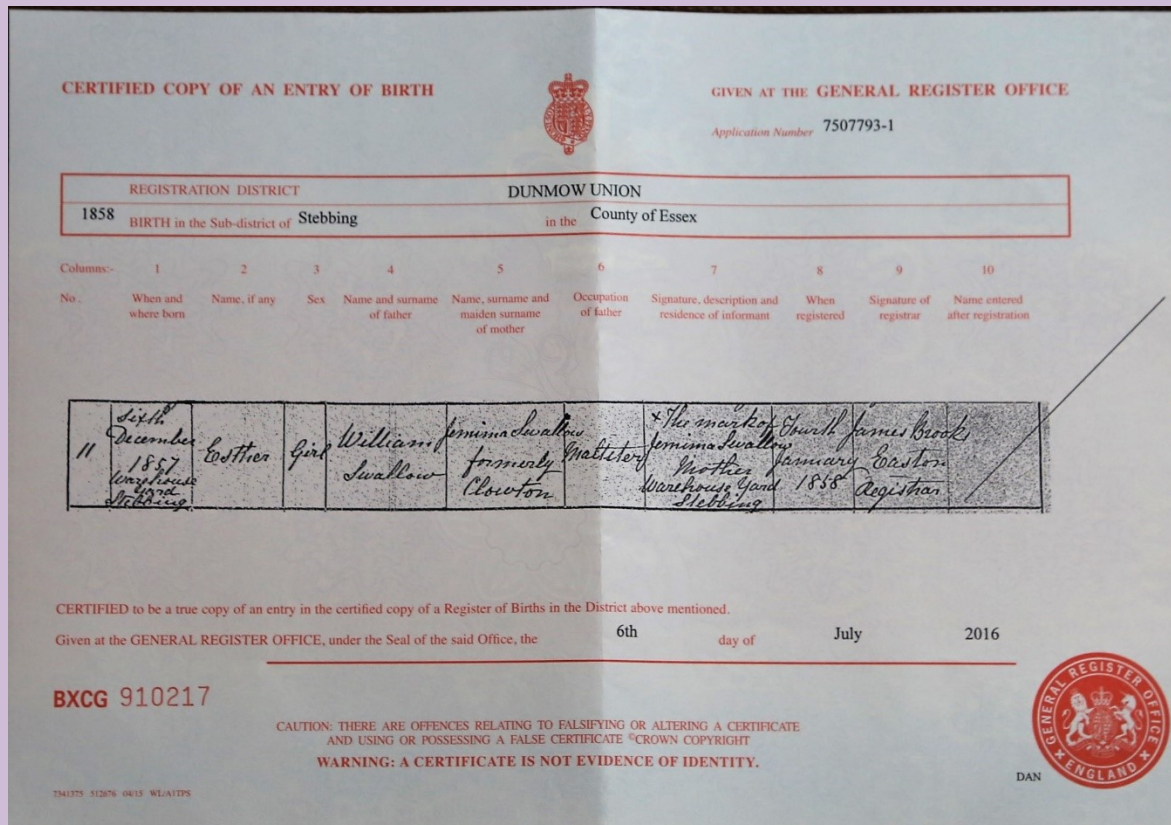 CERTIFIED COPY OF AN ENTRY OF BIRTH
GIVEN AT THE GENERAL REGISTER OFFICE
Application Number 7507793-1
REGISTRATION DISTRICT DUNMOW UNION
1858 BIRTH in the Sub-district of Stebbing in the County of Essex
Columns:- 1 2 3 4 5 6 7 8 9 10
No. When and where born Name, if any Sex Name and surname of father Name, surname and maiden surname of mother Occupation of father Signature, description and residence of informant When registered Signature of registrar Name entered after registration
11
Sixth
December
1857
Warehouse
Yard
Stebbing
Esther
Girl
William
Swallow
Jemima Swallow
formerly
Clowton
Maltster
x The mark of
Jemima Swallow
Mother
Warehouse Yard
Stebbing
Fourth
January
1858
James Brooks
Easton
Registrar
CERTIFIED to be a true copy of an entry in the certified copy of a Register of Births in the District above mentioned.
Given at the GENERAL REGISTER OFFICE, under the Seal of the said Office, the 6th day of July 2016
BXCG 910217
CAUTION: THERE ARE OFFENCES RELATING TO FALSIFYING OR ALTERING A CERTIFICATE
AND USING OR POSSESSING A FALSE CERTIFICATE ©CROWN COPYRIGHT
WARNING: A CERTIFICATE IS NOT EVIDENCE OF IDENTITY.
GENERAL REGISTER OFFICE
ENGLAND
DAN
7341375 512676 04/15 WL/A1TPS